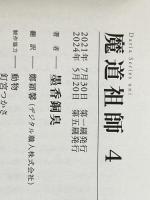 Daria Series uni
魔道祖師 4
2021年 7月30日 第一刷発行
2024年 5月20日 第五刷発行
著者 ― 墨香銅臭
翻訳 ― 鄭穎馨(デジタル職人株式会社)
制作協力 ― 動物
釘宮つかさ